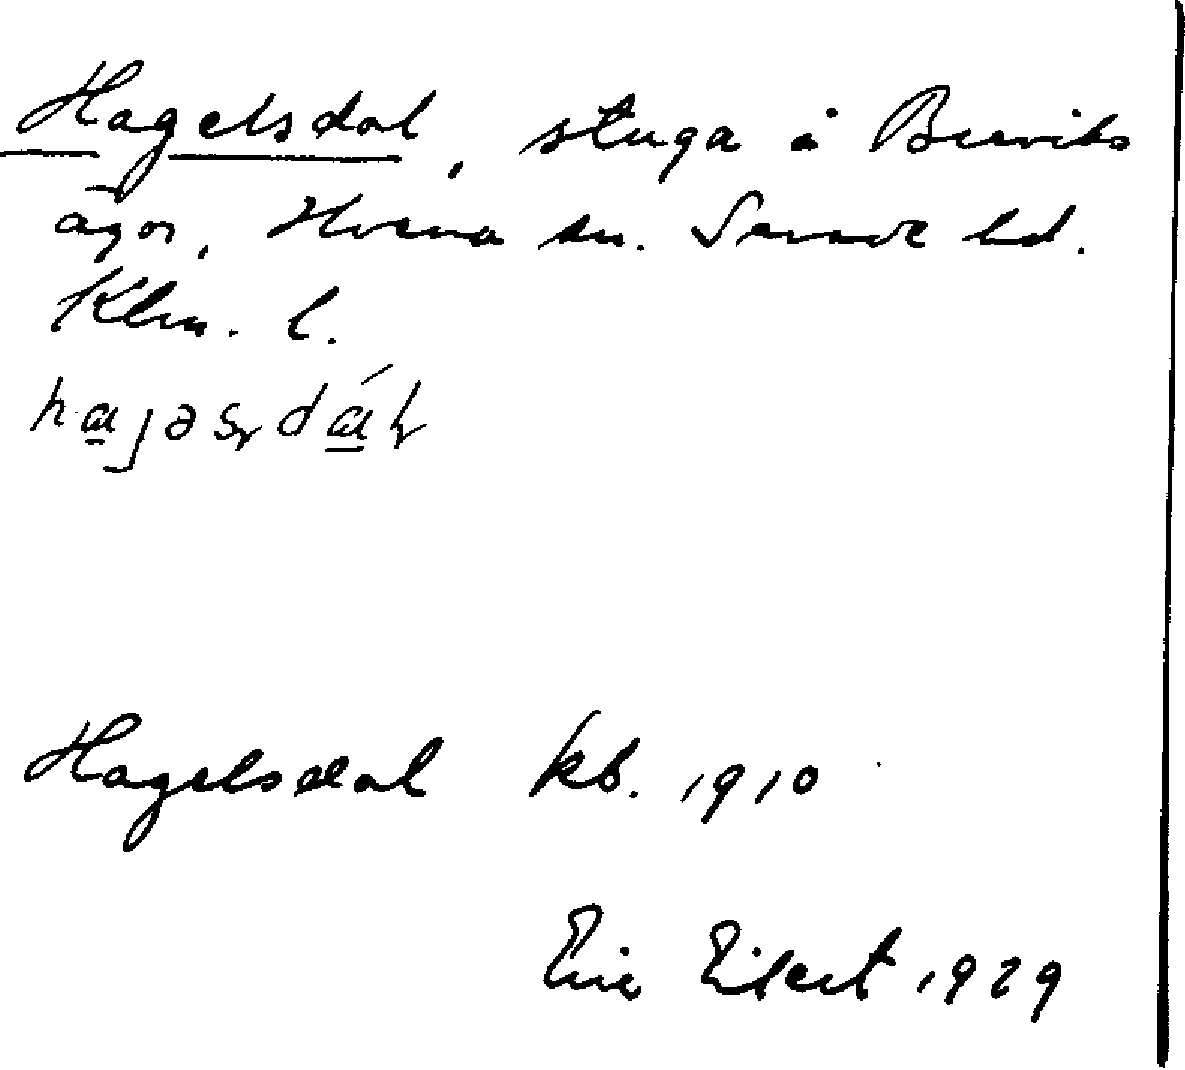 Hagelsdal, stuga å Bursviks
ägor, Hvena sn. Sevede hd.
Klm. l.
Hagelsdal kb. 1910
Eric Elfert 1929